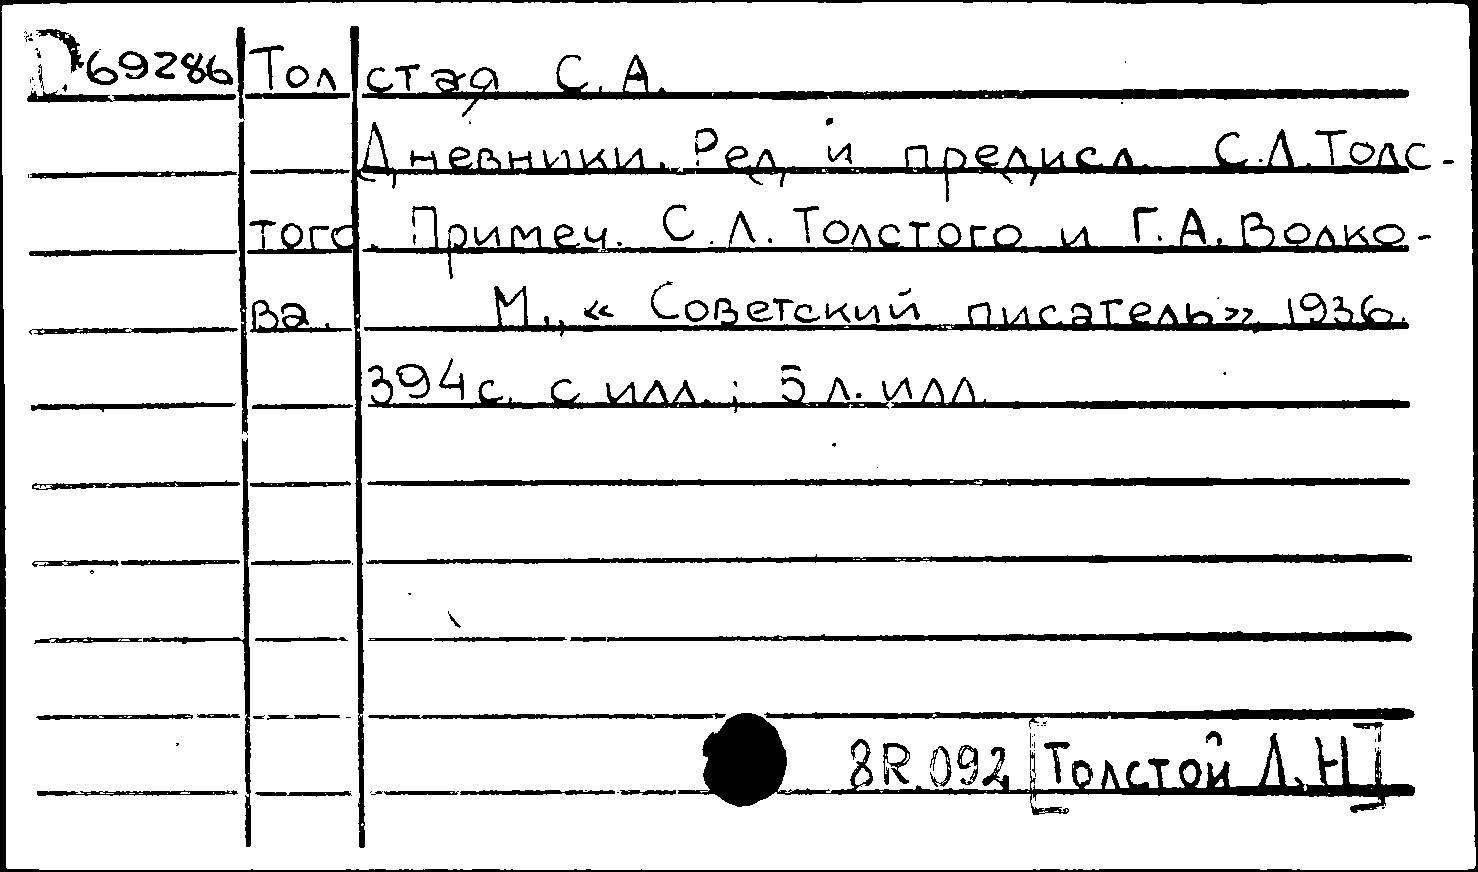 D69286 Толстая С.А.
Дневники. Ред. и предисл. С.Л.Толс-
того. Примеч. С.Л. Толстого и Г.А. Волко-
ва. М., «Советский писатель», 1936.
394с. с илл.; 5 л. илл.
8R.092 [Толстой Л.Н]